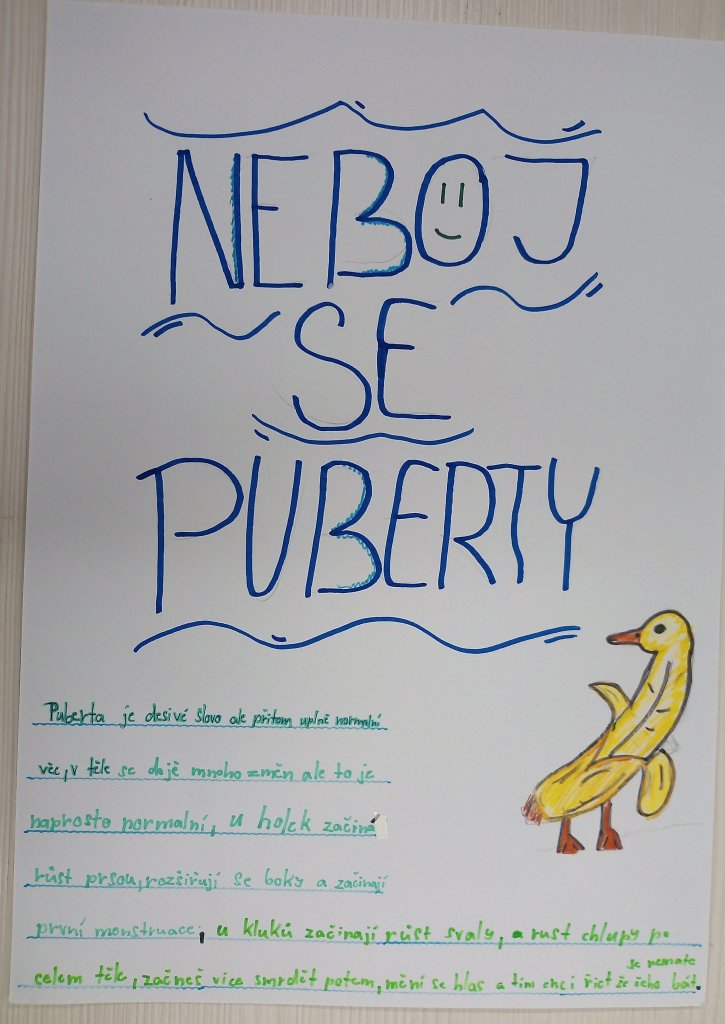 NEBOJ
SE
PUBERTY
Puberta je desivé slovo ale přitom uplně normalní
věc, v těle se dějě mnoho změn ale to je
naprosto normalní, u holek začíná
růst prsou, rozšiřují se boky a začínají
první menstruace, u kluků začínají růst svaly, a rust chlupy po
celem těle, začneš více smrdět potem, mění se hlas a tím chci řict že se nemate čeho bát.